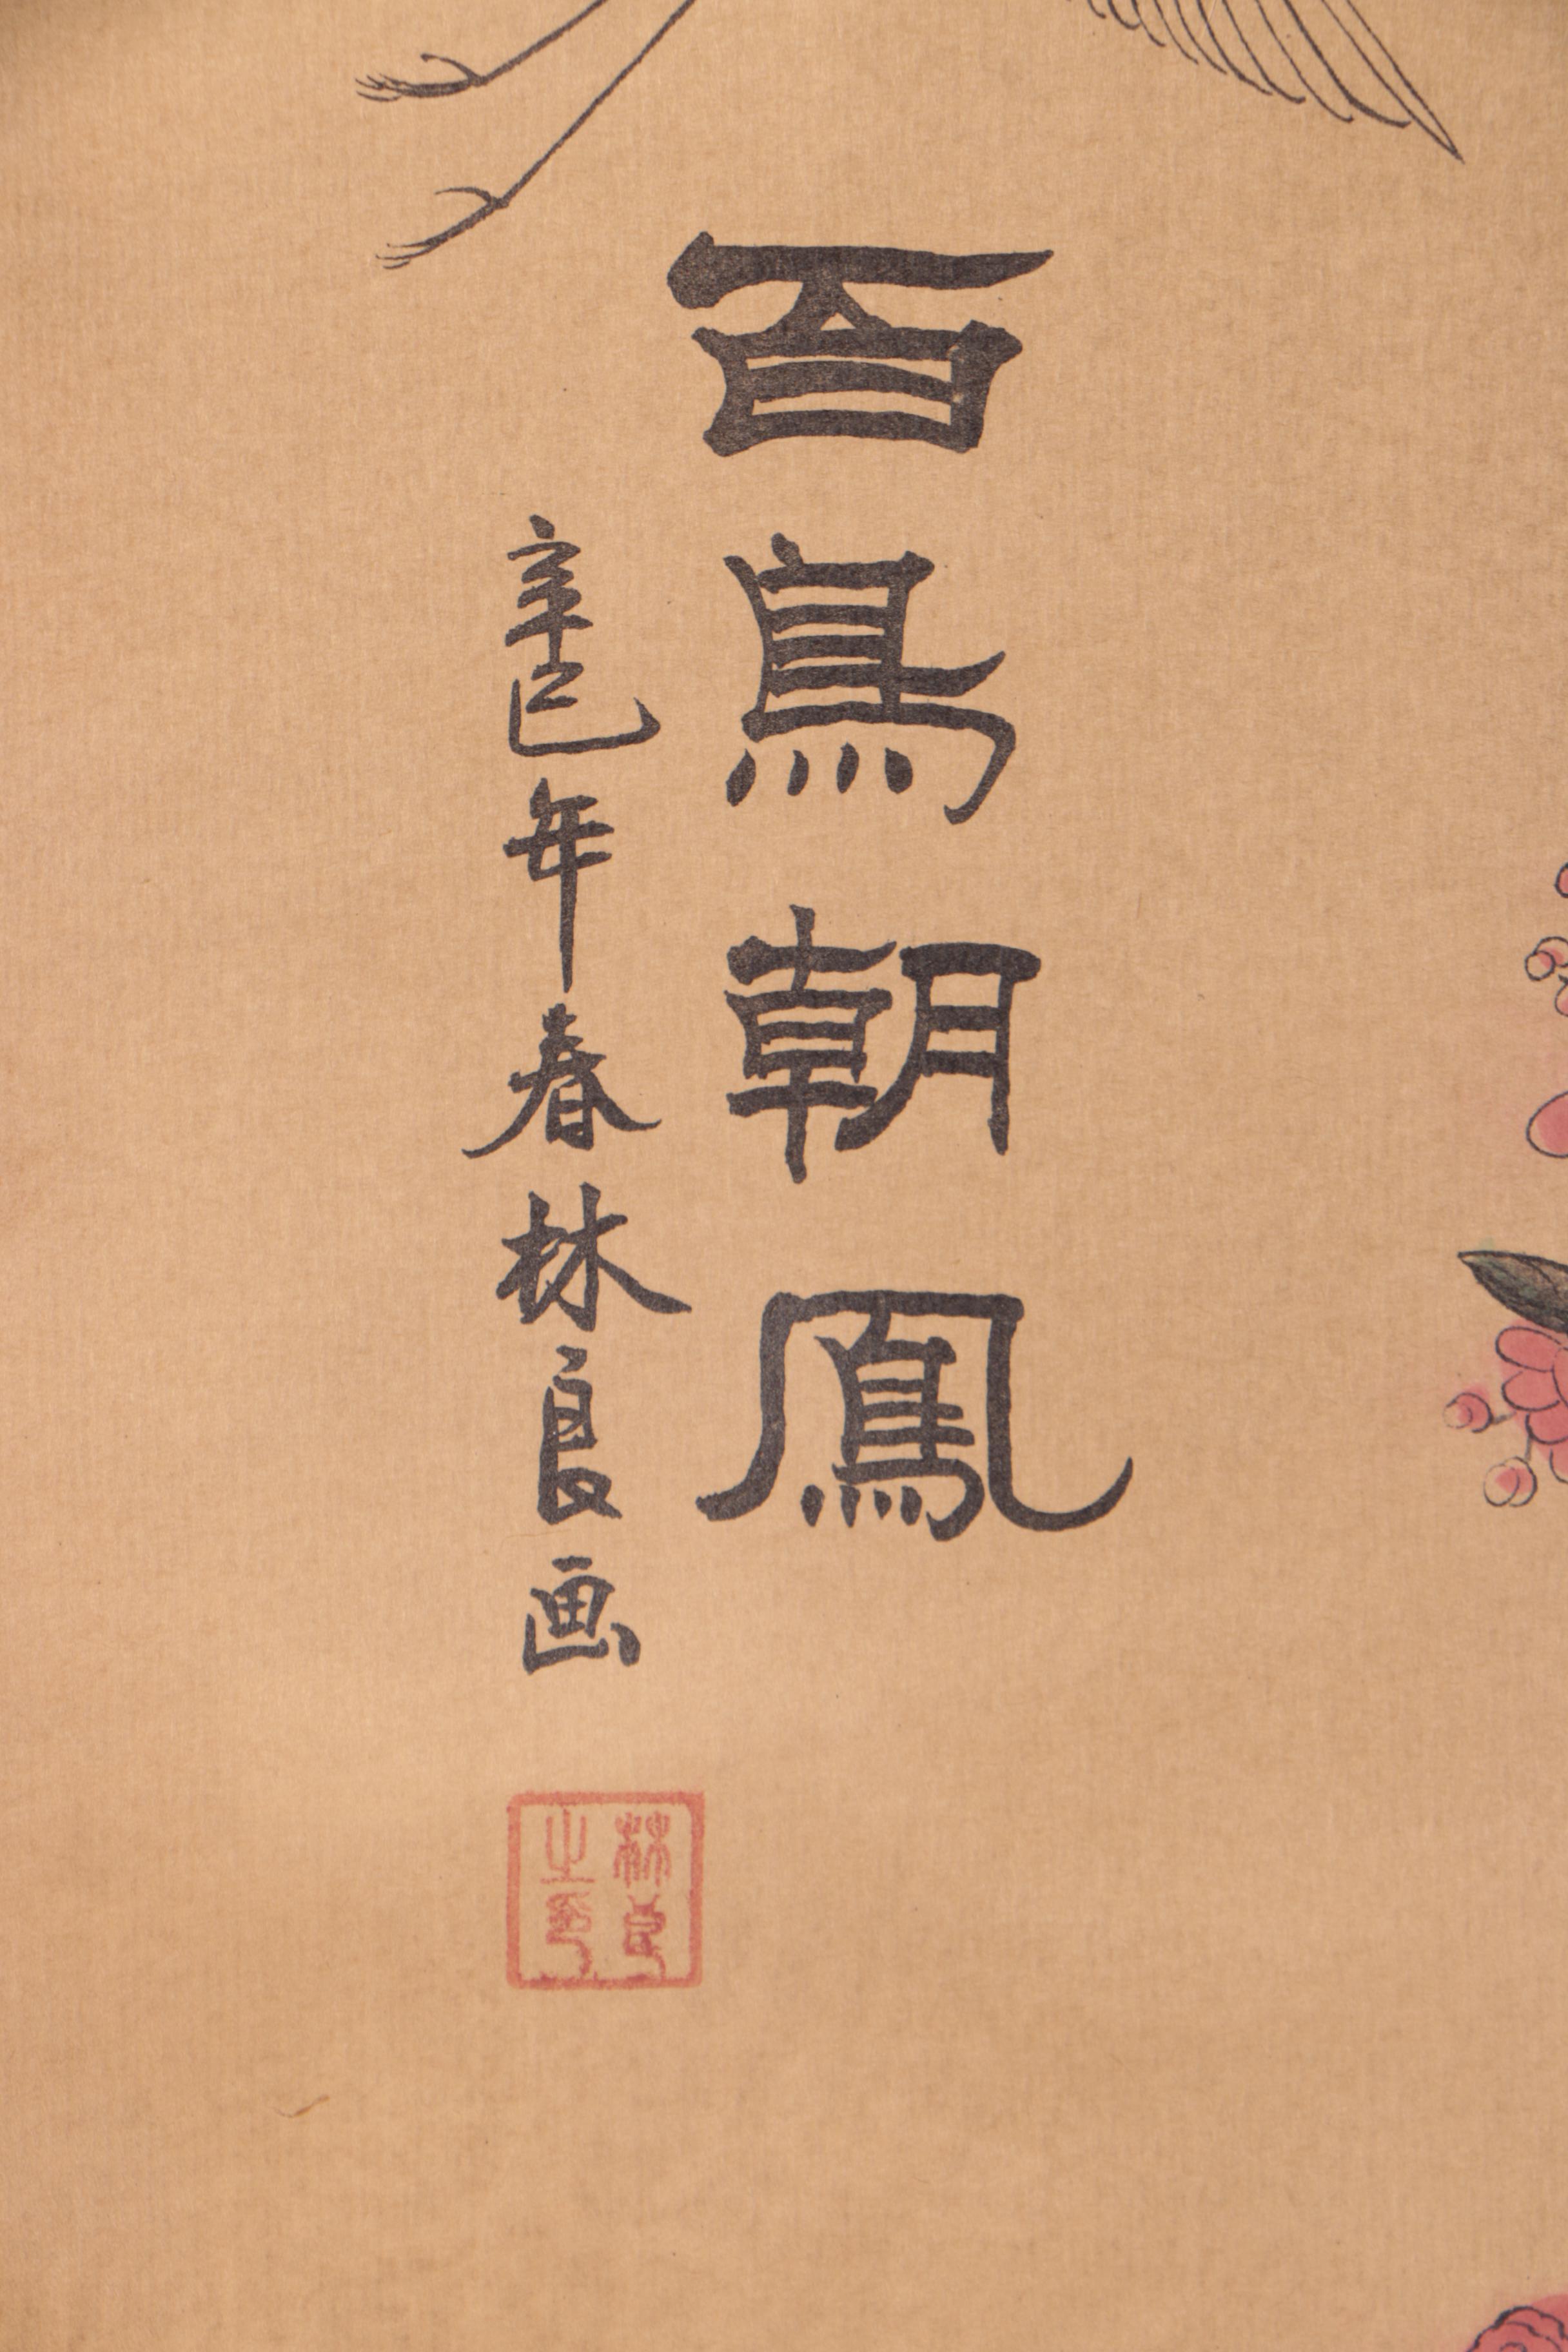 百鳥朝鳳
辛巳年春林良画
林良之印